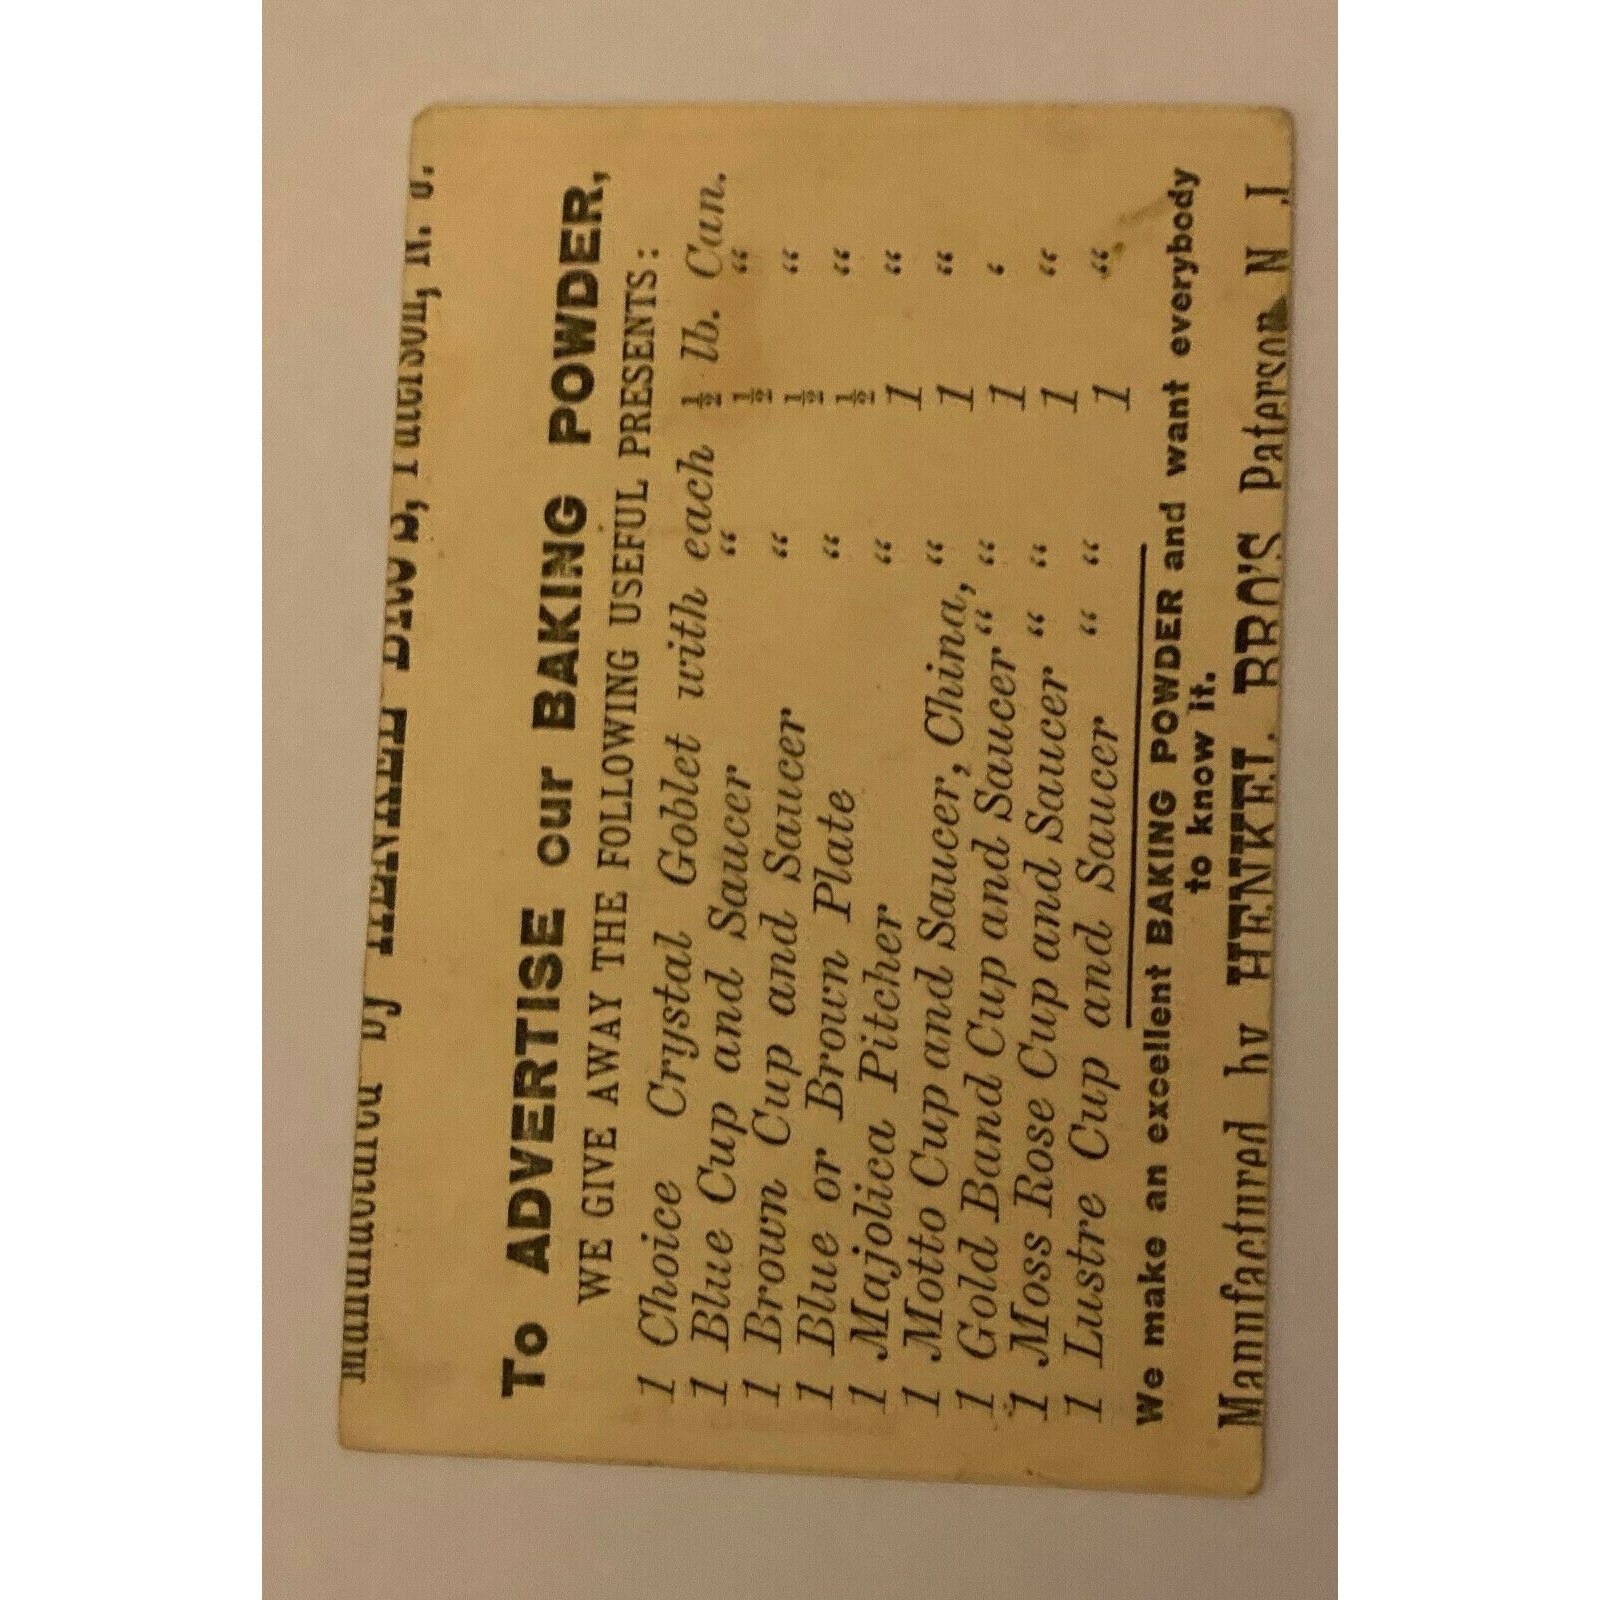 Manufactured by HENKEL BRO'S, Paterson, N. J.
To ADVERTISE our BAKING POWDER,
WE GIVE AWAY THE FOLLOWING USEFUL PRESENTS:
1 Choice Crystal Goblet with each ½ lb. Can.
1 Blue Cup and Saucer “ ½ “
1 Brown Cup and Saucer “ ½ “
1 Blue or Brown Plate “ ½ “
1 Majolica Pitcher “ 1 “
1 Motto Cup and Saucer, China, “ 1 “
1 Gold Band Cup and Saucer “ “ 1 ‘
1 Moss Rose Cup and Saucer “ “ 1 “
1 Lustre Cup and Saucer “ “ 1 “
We make an excellent BAKING POWDER and want everybody
to know it.
Manufactured by HENKEL BRO'S Paterson N J